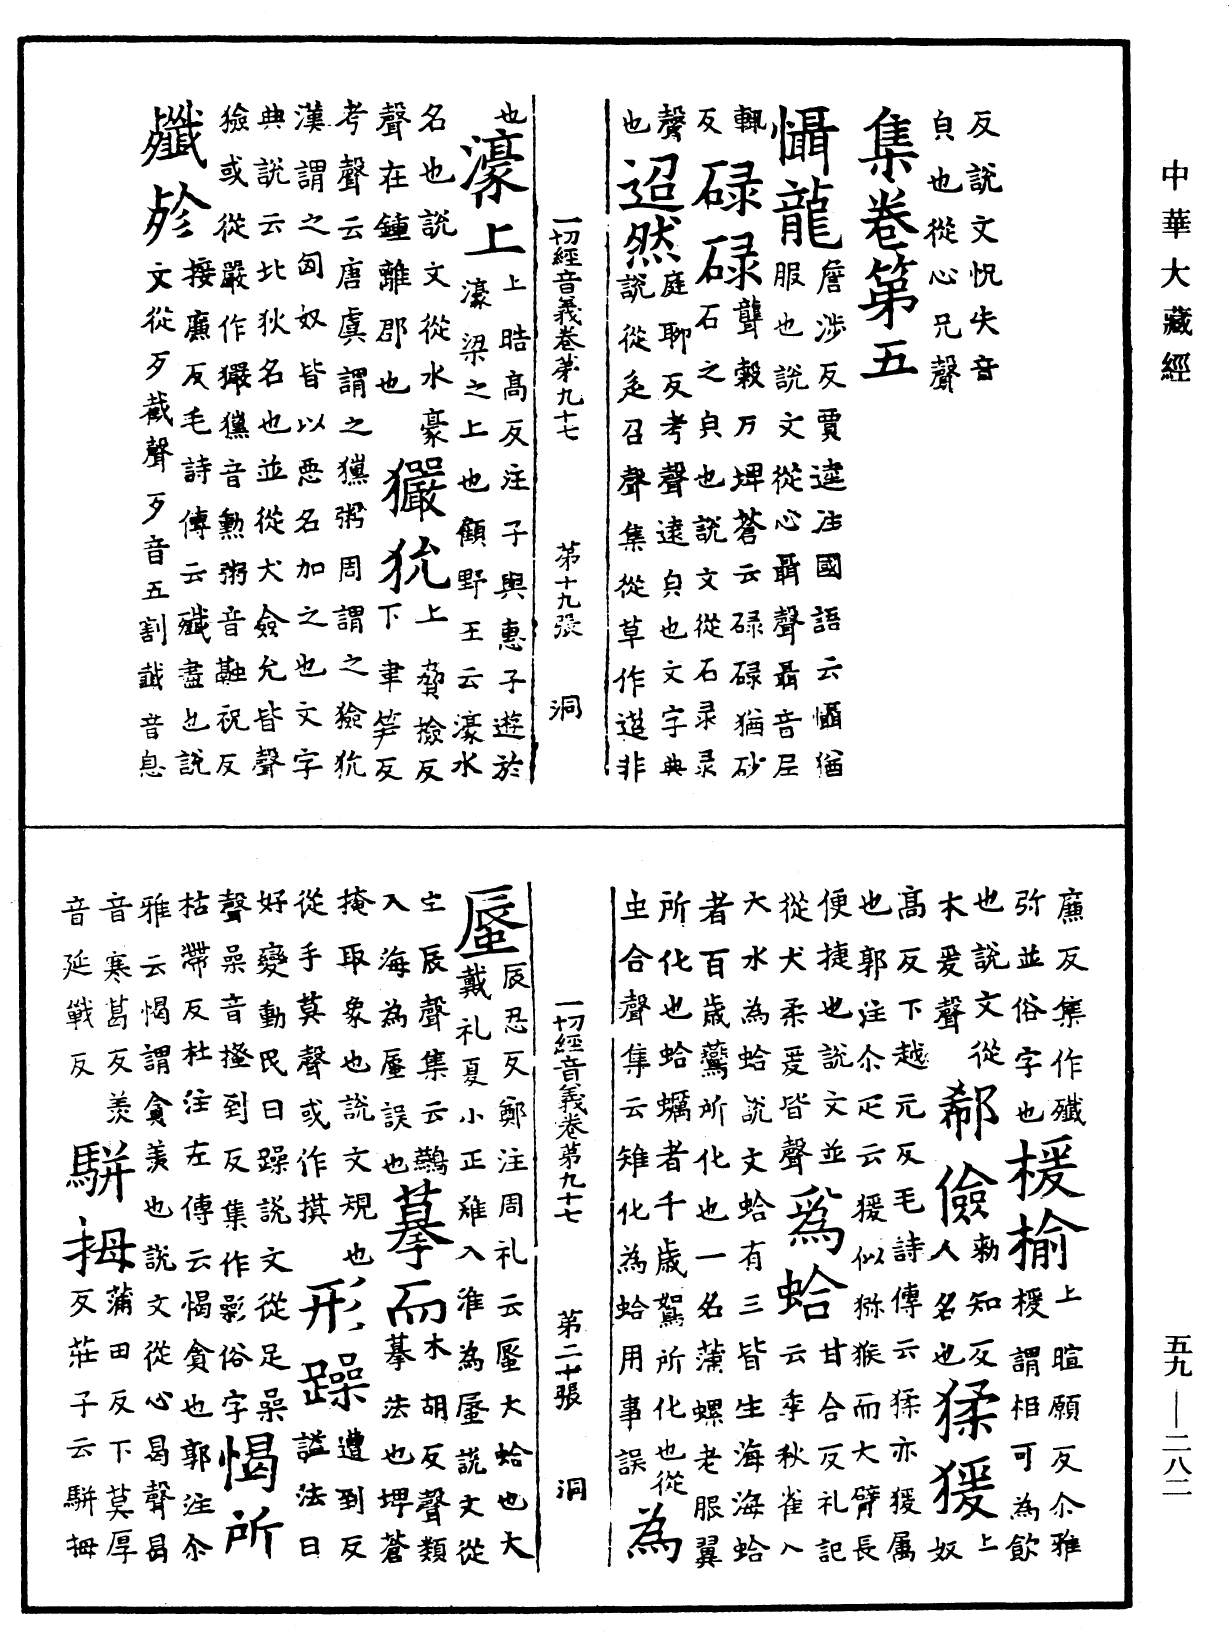 中華大藏經
反說文怳失音
㒵也從心兄聲
集卷第五
懾龍詹涉反賈逵注國語云懾猶
服也說文從心聶聲聶音尼
輒反
碌碌聾穀反埤蒼云碌碌猶砂
石之㒵也說文從石录录
聲也
迢然庭聊反考聲遠㒵也文字典
說從辵召聲集從草作䒒非
也
一切經音義卷第九十七 第十九張 洞
濠上上晧高反注子與惠子遊於
濠梁之上也顧野王云濠水
名也說文從水豪
聲在鍾離郡也
玁狁上㿸撿反
下聿笋反
考聲云唐虞謂之獯粥周謂之獫狁
漢謂之匈奴皆以惡名加之也文字
典說云北狄名也並從犬僉允皆聲
獫或從嚴作玁獯音勳粥音融祝反
殲歺接廉反毛詩傳云殲盡也說
文從歹韱聲歹音五割韱音息
廉反集作殱
弥並俗字也
楥榆上暄願反尒雅
楥謂相可為飲
也說文從
木爰聲
郗儉人名也
勑知反
猱猨上奴
高反下越元反毛詩傳云猱亦猨属
也郭注尒疋云猨似獼猴而大臂長
便捷也說文並
從犬柔爰皆聲
為蛤甘合反礼記
云季秋雀入
大水為蛤說文蛤有三皆生海海蛤
者百歲鷰所化也一名蒲螺老服翼
所化也蛤蠣者千歲鴽所化也從
虫合聲集云雉化為蛤用事誤
為
一切經音義卷第九十七 第二十張 洞
蜃辰忍反鄭注周礼云蜃大蛤也大
戴礼夏小正雉入淮為蜃說文從
虫辰聲集云鷃
入海為蜃誤也
摹而木胡反聲類
摹法也埤蒼
掩取象也說文規也
從手莫聲或作摸
形躁遭到反
謚法曰
好變動民曰躁說文從足喿
聲喿音搔到反集作㲋俗字
愒所
枯滯反杜注左傳云愒貪也郭注尒
雅云愒謂貪羨也說文從心曷聲曷
音寒葛反羨
音延戰反
騈拇蒲田反下莫厚
反莊子云騈拇
五九—二八二